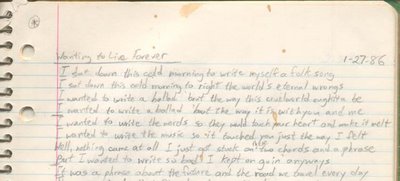 Wanting to Live Forever
1-27-86
I sat down this cold morning to write myself a folk song
I sat down this cold morning to right the world's eternal wrongs
I wanted to write a ballad bout the way this cruel world oughtta be
I wanted to write a ballad bout the way it is with you and me
I wanted to write the words so they would touch your heart and make it melt
I wanted to write the music so it touched you just the way I felt
Well, nothing came at all I just got stuck on two chords and a phrase
But I wanted to write so bad I kept on goin' anyways
It was a phrase about the future and the road we travel every day